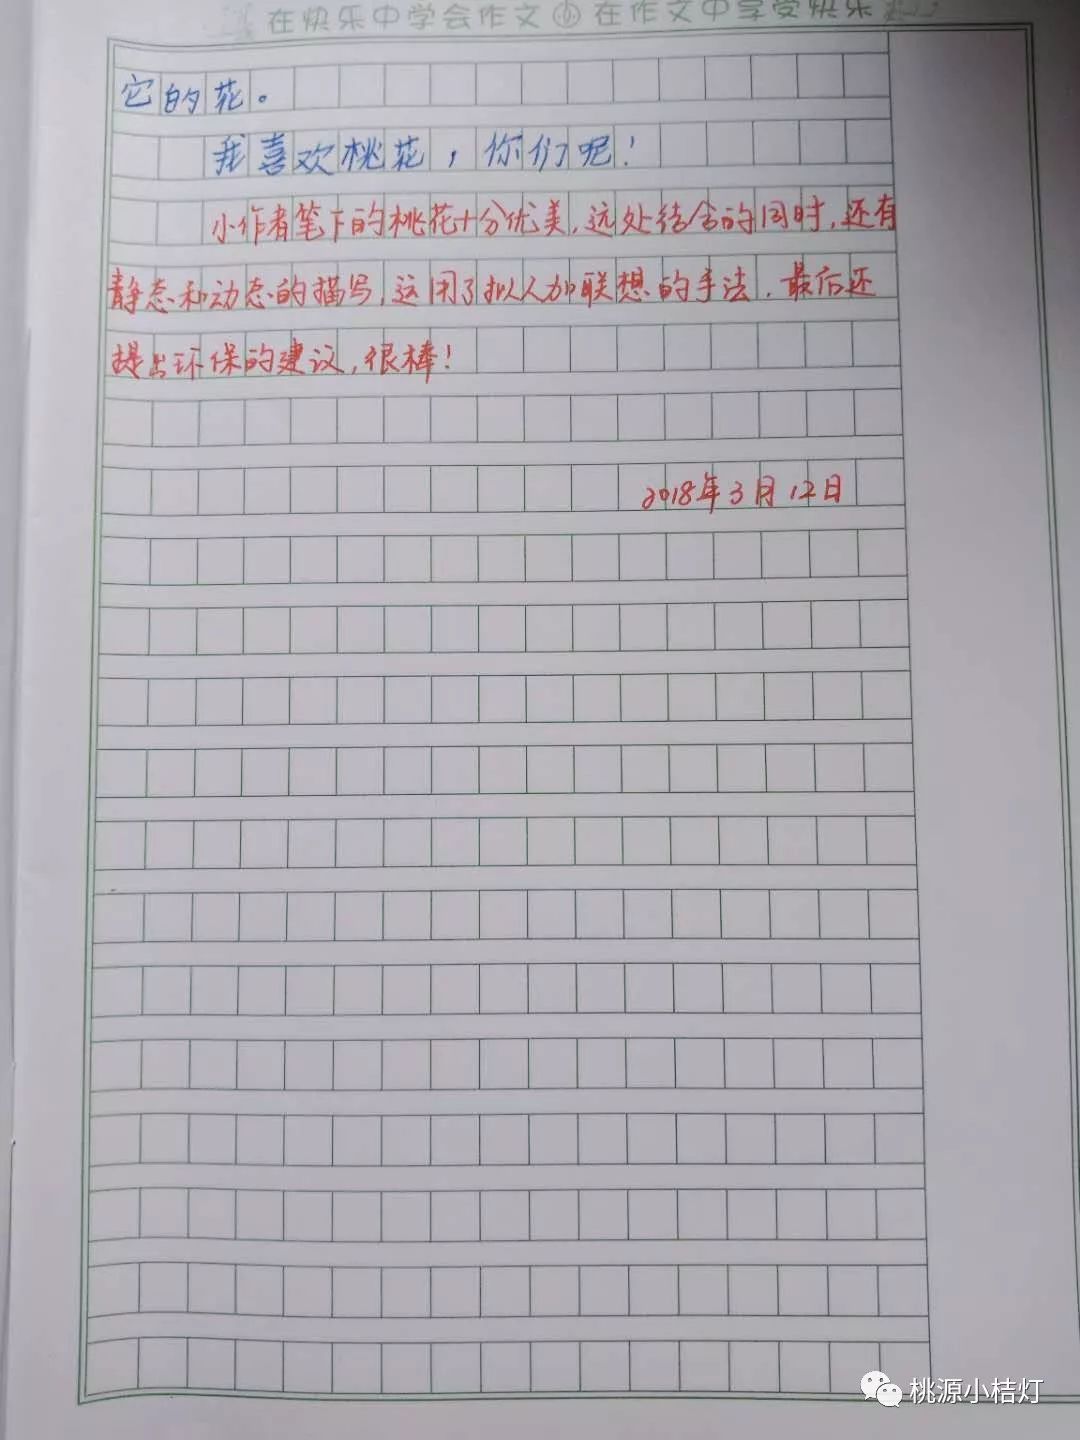 在快乐中学会作文 在作文中享受快乐
它的花。
我喜欢桃花，你们呢！
小作者笔下的桃花十分优美，远处结合的同时，还有
静态和动态的描写，运用了拟人加联想的手法．最后还
提出环保的建议，很棒！
2018年3月12日
桃源小桔灯